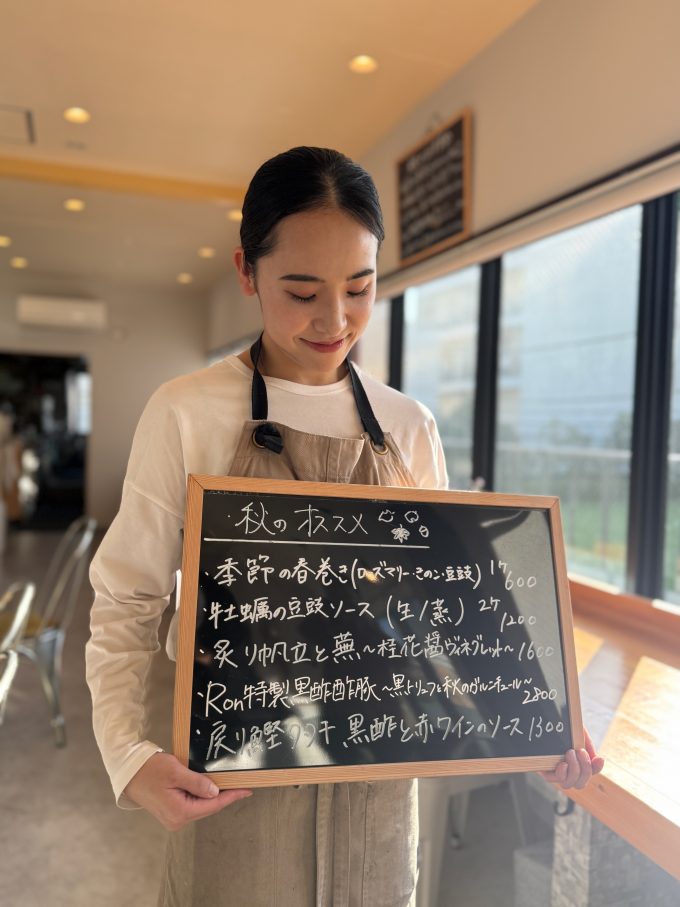 ・秋のオススメ
・季節の春巻き(ローズマリー・きのこ・豆豉) 1ケ 600
・牡蠣の豆豉ソース (生/蒸) 2ケ 1200
・炙り帆立と蕪〜桂花醤ヴィネグレット〜 1600
・Ron特製黒酢酢豚〜黒トリュフと秋のガルニチュール〜 2800
・戻り鰹タタキ 黒酢と赤ワインのソース 1300